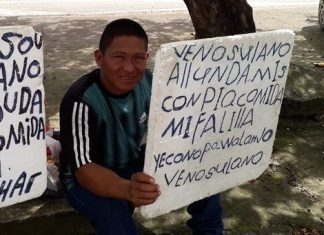 SOU
ANO
UDA
OMIDA
A
HAF
VENOSULANO
AllUNDAMIS
CONPIACOMIDA
MIFALILLA
YECONOPAWALANNO
VENOSULANO